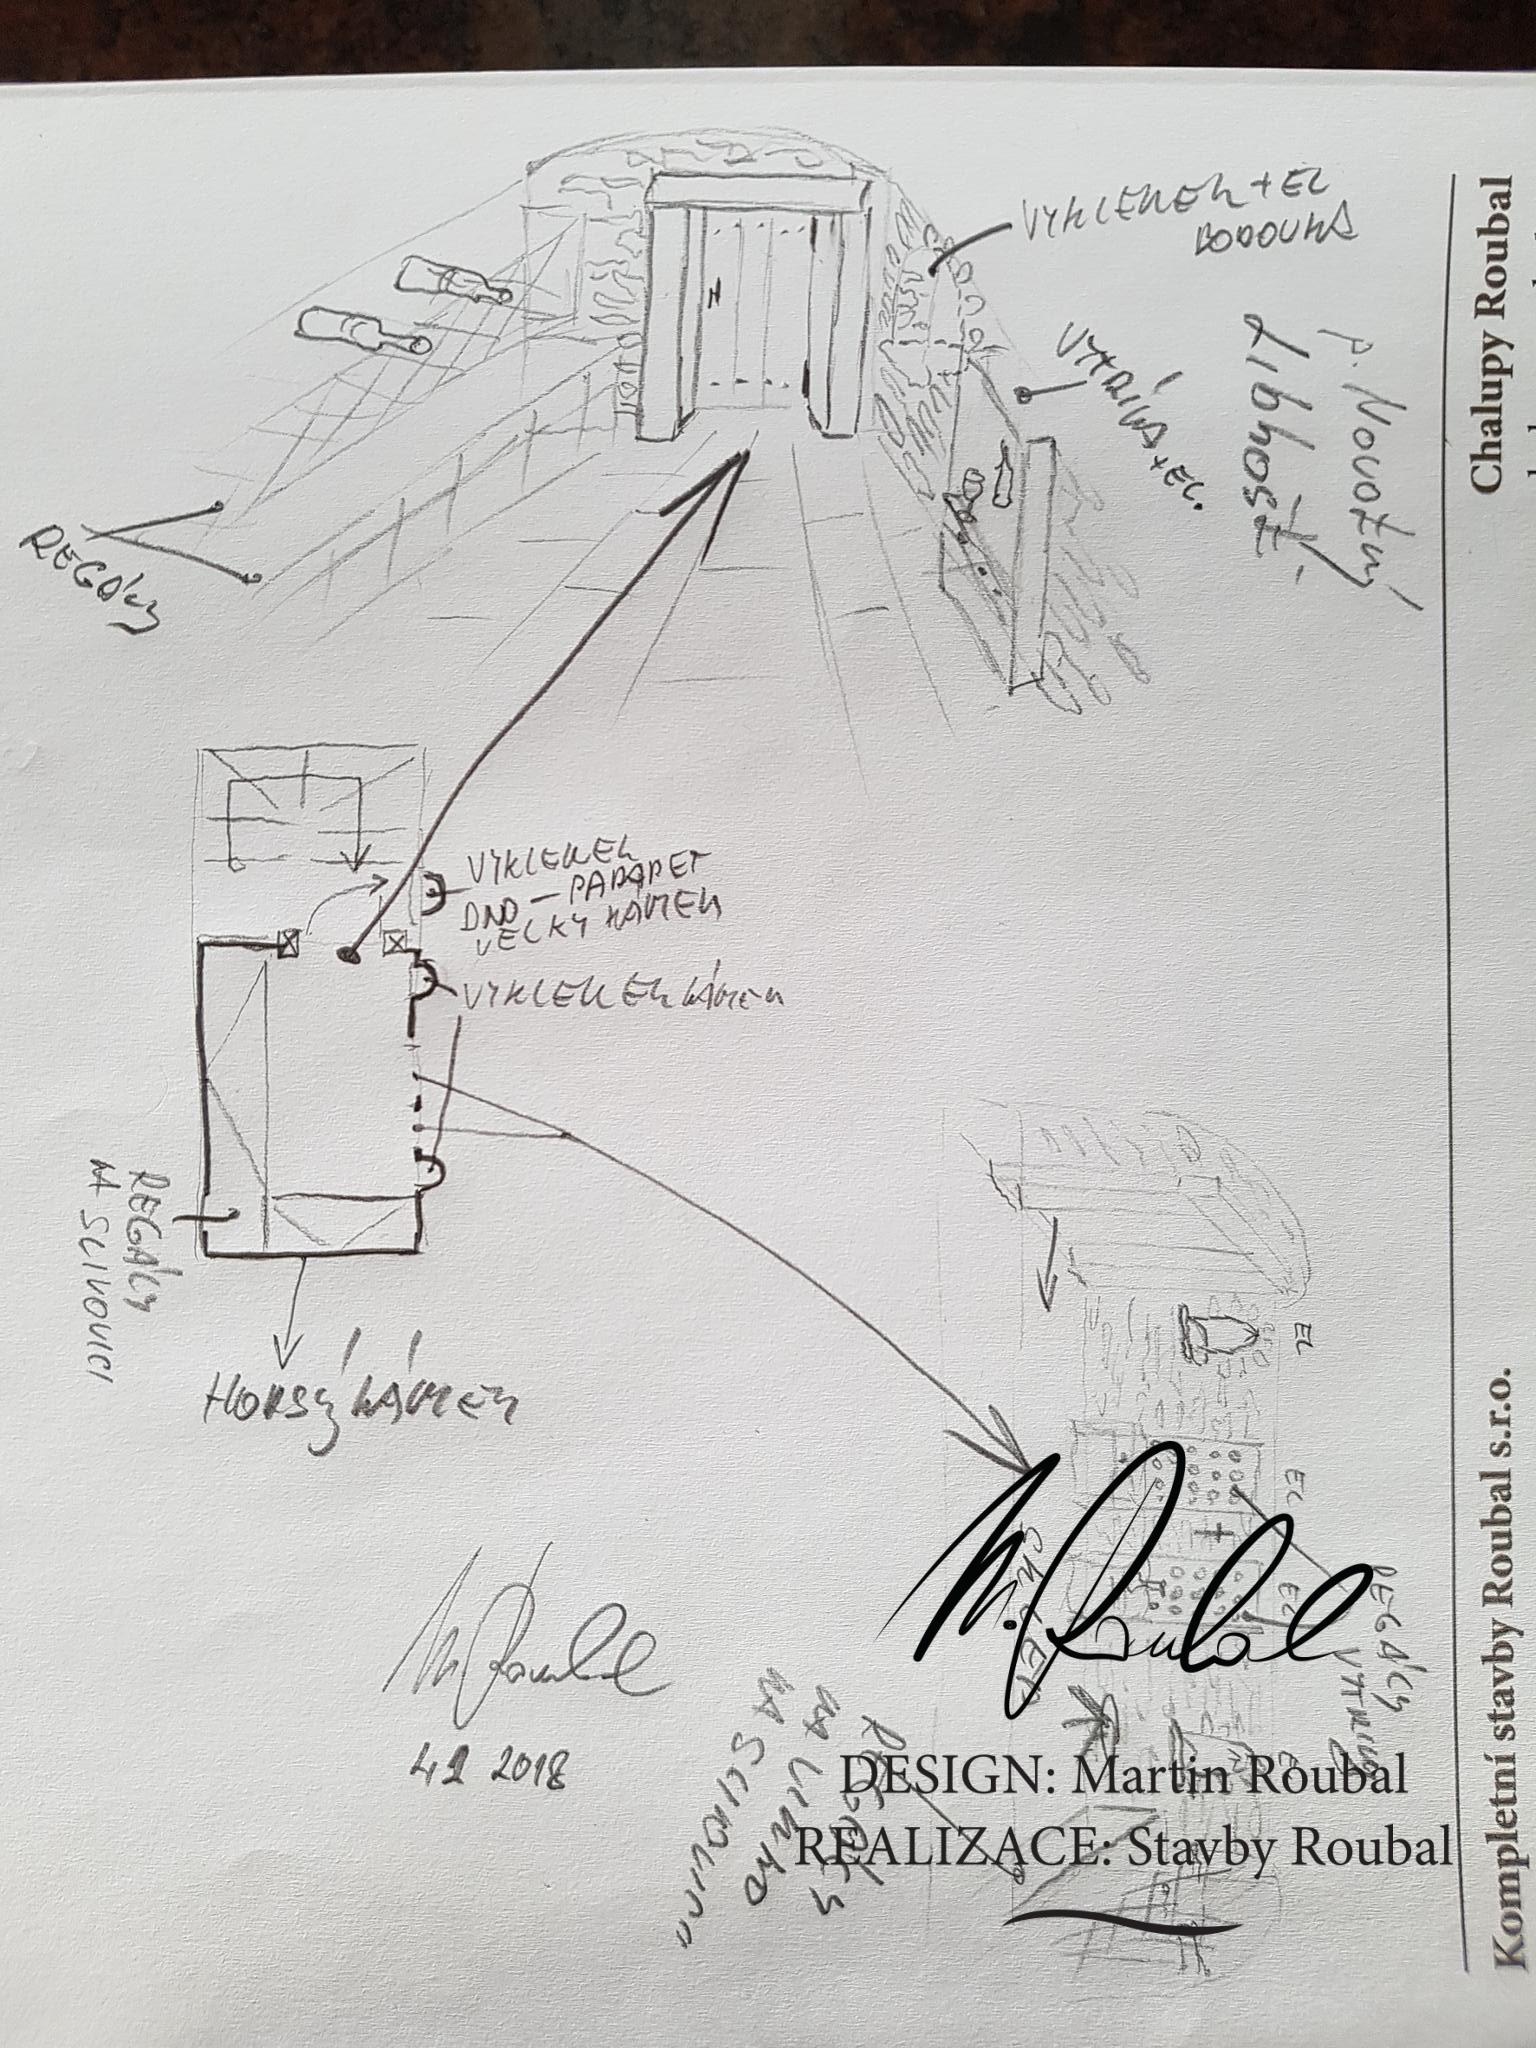 VÝKLENEK + EL
BODOVKA
VYTRÍNA + EL.
REGÁLY
p. Novotný
Libhošť
VÝKLENEK
DNO - PARAPET
VELKÝ KÁMEN
VÝKLENEK KÁMEN
REGÁLY
NA SLIVOVICI
HORSÝ KÁMEN
EL
EL
EL
REGÁLY
VYTRÍNA
REGÁLY
NA VÍNKO
NA SLIVOVICI
M. Roubal
2018
M. Roubal
DESIGN: Martin Roubal
REALIZACE: Stavby Roubal
Chalupy Roubal
Kompletní stavby Roubal s.r.o.